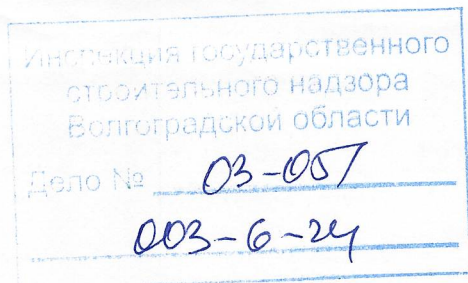 Инспекция государственного
строительного надзора
Волгоградской области
Дело № 03-051
003-6-24